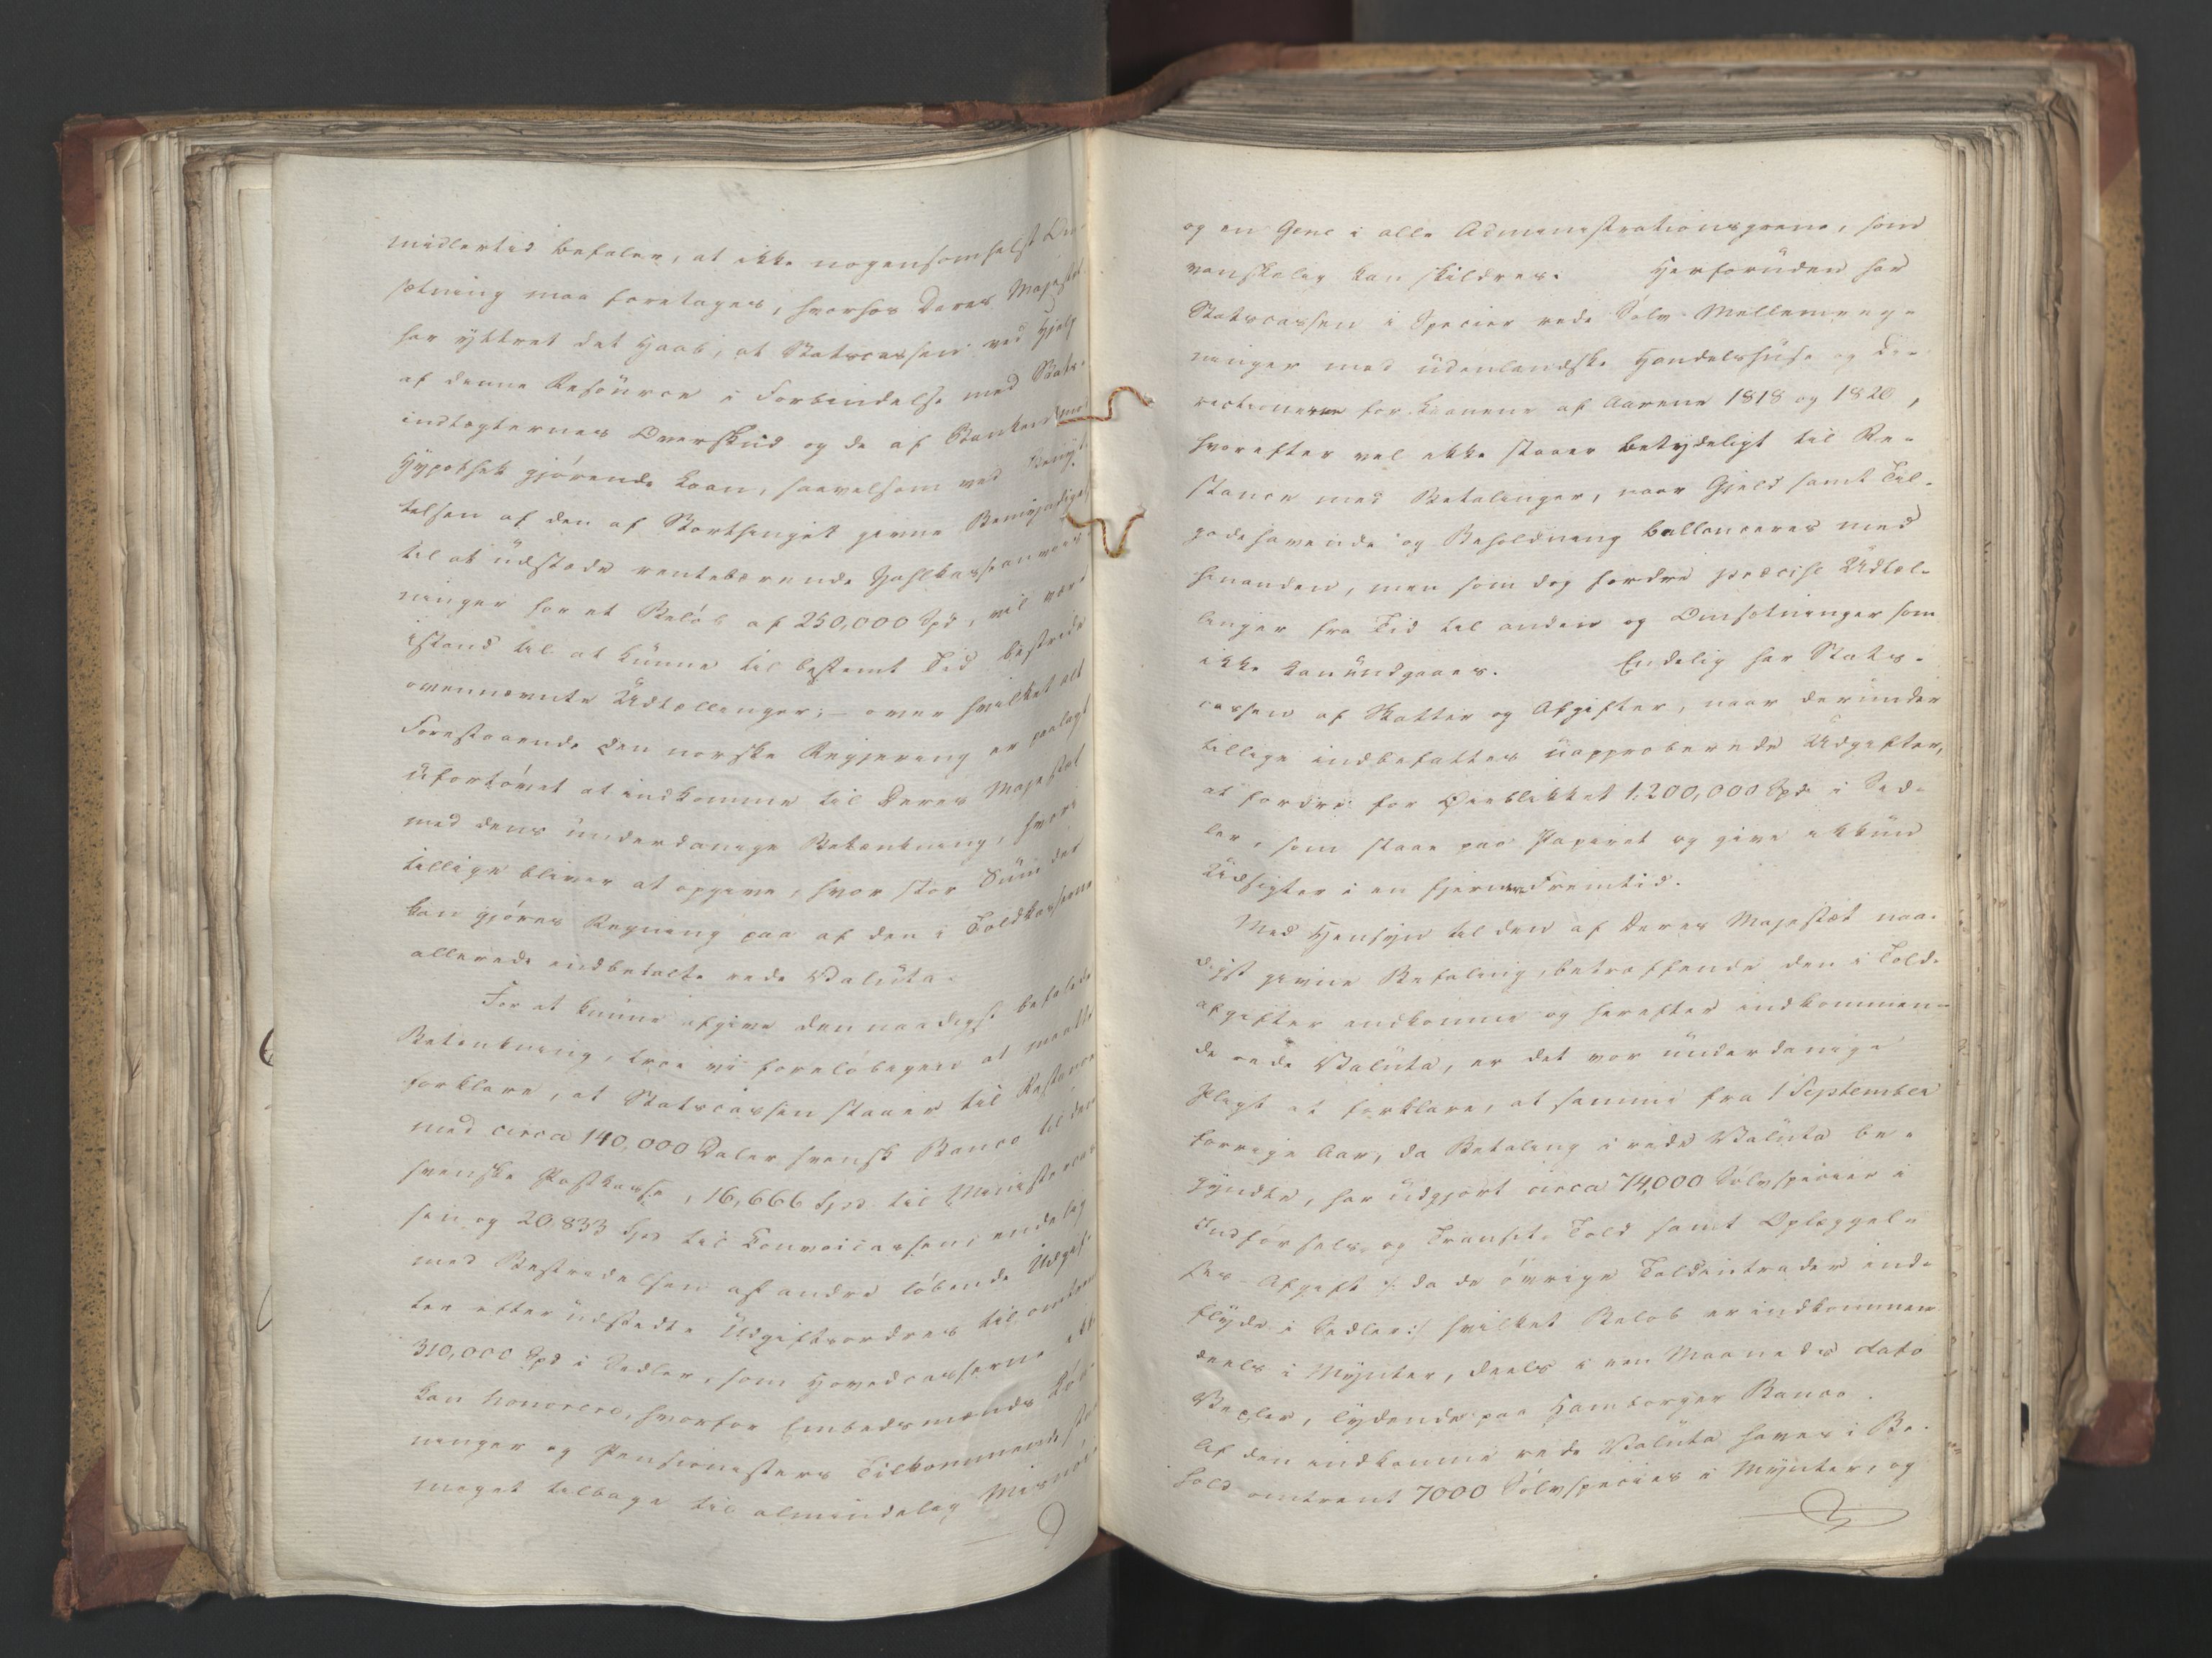 midlertid befalet, at ikke nogensomhelst Om-
sætning maa foretages, hvorhos Deres Majestæt
har yttret det Haab, at Statscassen ved Hjelp
af denne Resource i Forbindelse med Stats-
indtægternes Overskud og de af Banken mod
Hypothek gjørende Laan, saavelsom ved Benyt-
telsen af den af Storthinget givne Bemyndigelse
til at udstæde rentebærende Zahlkasseanviis-
ninger for et Beløb af 250,000 Spd, vil være
istand til at kunne til bestemt Tid bestride
ovennævnte Udtællinger; – over hvilket alt
Forestaaende den norske Regjering er paalagt
ufortøvet at indkomme til Deres Majestæt
med dens underdanige Betænkning, hvori
tillige bliver at opgive, hvor stor Sum der
kan gjøres Regning paa af den i Toldkasserne
allerede indbetalte rede Valuta.
For at kunne afgive den naadigst befalede
Betænkning, troe vi foreløbigen at maatte
forklare, at Statscassen staaer til Restance
med circa 140,000 Daler svensk Banco til den
svenske Postkasse, 16,666 Spd til Ministercas-
sen og 20.833 Spd til Convoicassen; endelig
med Bestridelsen af andre løbende Udgif-
ter efter udstedte Udgiftsordres til omtrent
310,000 Spd i Sedler, som Hovedcasserne ikke
kan honorere, hvorfor Embedsmænds Løn-
ninger og Pensionisters Tilkommende staae
meget tilbage til almindelig Misnøie,
og en Gene i alle Administrationsgrene, som
vanskelig kan skildres. Herforuden har
Statscassen i Specier rede Sølv Mellemreg-
ninger med udenlandske Handelshuse og Di-
rectionerne for Laanene af Aarene 1818 og 1820,
hvorefter vel ikke staaer betydeligt til Re-
stance med Betalinger, naar Gjeld samt Til-
godehavende og Beholdning ballanceres med
hinanden, men som dog fordre præcise Udtæl-
linger fra Tid til anden og Omsætninger som
ikke kan undgaaes. Endelig har Stats-
cassen af Skatter og Afgifter, naar derunder
tillige indbefattes uapproberede Udgifter,
at fordre for Øieblikket 1,200,000 Spd i Sed-
ler, som staae paa Papiret og give ikkun
Udsigter i en fjern Fremtid.
Med Hensyn til den af Deres Majestæt naa-
digst givne Befaling, betræffende den i Told-
afgifter indkomne og herefter indkommen-
de rede Valuta, er det vor underdanige
Pligt at forklare, at samme fra 1 September
forrige Aar, da Betaling i rede Valuta be-
gyndte, har udgjort circa 74,000 Sølvspecier i
Indførsels- og Transit-Told samt Oplæggel-
ses-Afgift /: da de øvrige Toldintrader ind-
flyde i Sedler :/ hvilket Beløb er indkommen
deels i Mynter, deels i een Maaneds dato
Vexler, lydende paa Hamborger Banco.
Af den indkomne rede Valuta haves i Be-
hold omtrent 7000 Sølvspecier i Mynter, og